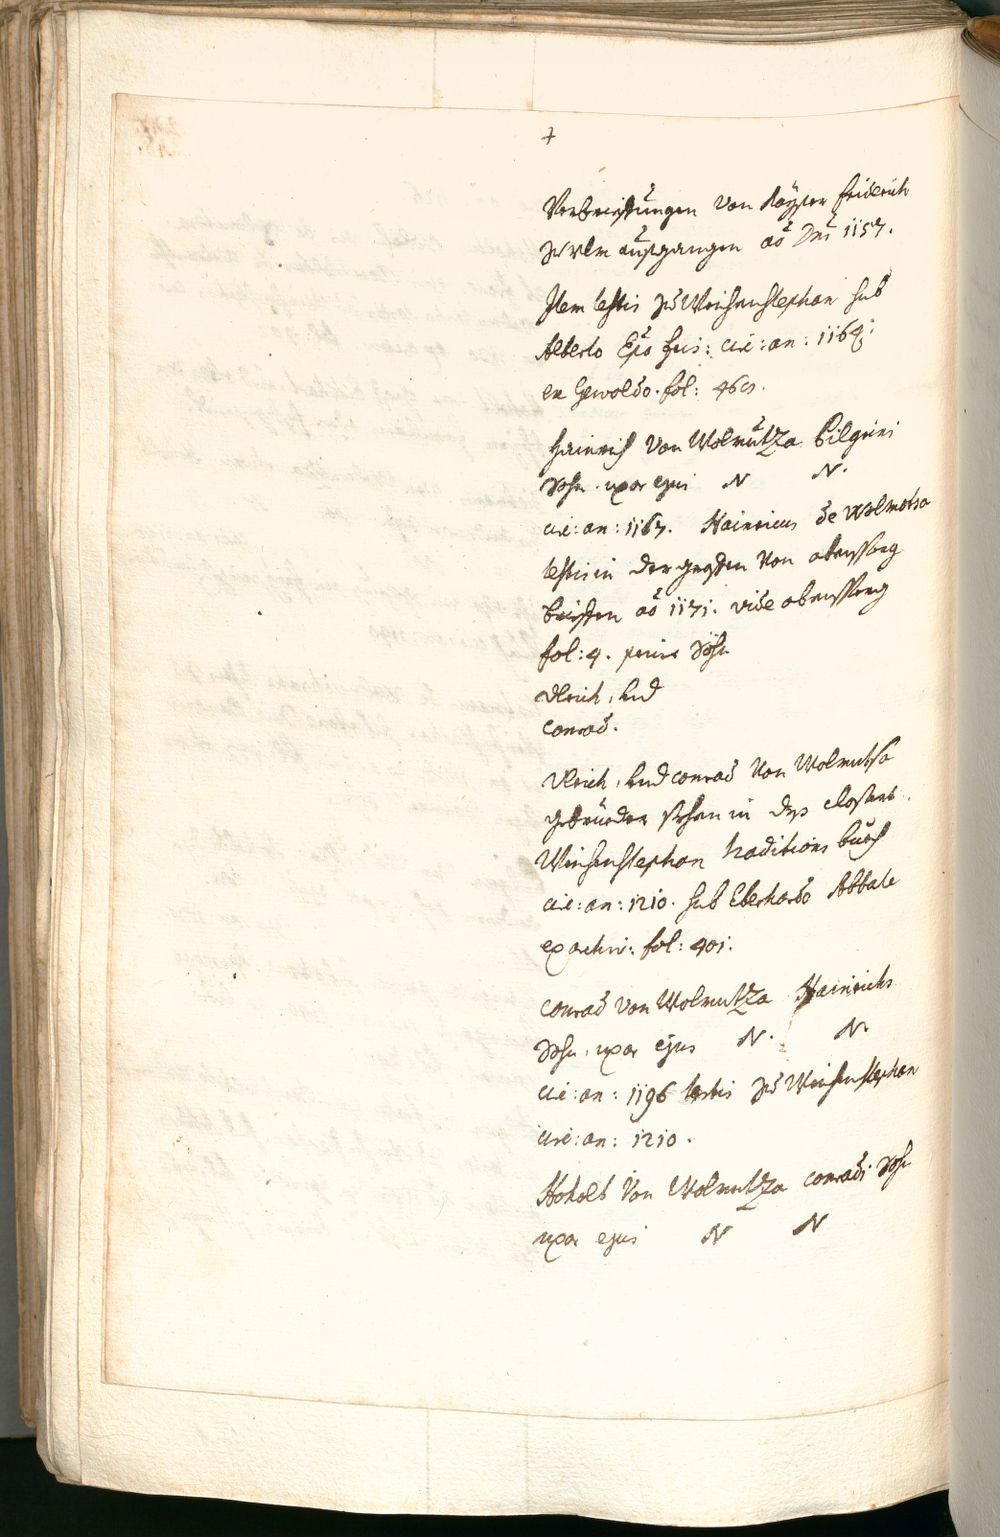 7
Verbreittungen von Kayser Friderich
zu Ulm außgangen ao Dni 1157.
Item testis zu Weichenstephan sub
Alberto Epo fris: cir: an: 1164:
ex Gewoldo. fol: 461.
Hainrich von Wolmutza Pilgrini
Sohn. uxor ejus N N.
cir: an: 1167. Hainricus de Wolmotsa
testis in der grafen von abensperg
brieffen ao 1171. vide abensperg
fol: 4. seine Söhn
Ulrich, und
Conrad.
Ulrich, und Conrad von Wolmutsa
gebrüeder stehen in deß closters
Weichenstephan traditions buech
cir: an: 1210. sub Eberhardo Abbate
ex archiv: fol: 401.
Conrad von Wolmutza Hainrichs
Sohn, uxor ejus N. N.
cir: an: 1196 testis zu Weichenstephan
circ: an: 1210.
Hoholt von Wolmutza Conradi Sohn
uxor ejus N N